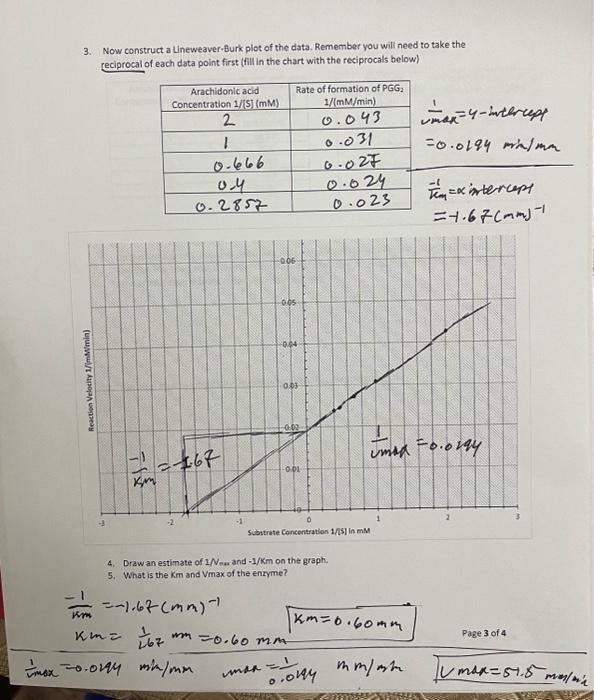 3. Now construct a Lineweaver-Burk plot of the data. Remember you will need to take the
reciprocal of each data point first (fill in the chart with the reciprocals below)
Arachidonic acid
Concentration 1/[S] (mM)
Rate of formation of PGG₂
1/(mM/min)
2 0.043
1 0.031
0.666 0.027
0.4 0.024
0.2857 0.023
1/Vmax = y-intercept
= 0.0194 min/mm
-1/Km = x intercept
= -1.67 (mm)⁻¹
Reaction Velocity 1/(mM/min)
0.06
0.05
0.04
0.03
0.02
0.01
0
-1/Km = -1.67
1/Vmax = 0.0194
-3 -2 -1 0 1 2 3
Substrate Concentration 1/[S] in mM
4. Draw an estimate of 1/Vmax and -1/Km on the graph.
5. What is the Km and Vmax of the enzyme?
-1/Km = -1.67 (mm)⁻¹
Km = 1/1.67 mm = 0.60 mm
Km = 0.60mm
Page 3 of 4
1/Vmax = 0.0194 min/mm Vmax = 1/0.0194 mm/min Vmax = 51.5 mm/min